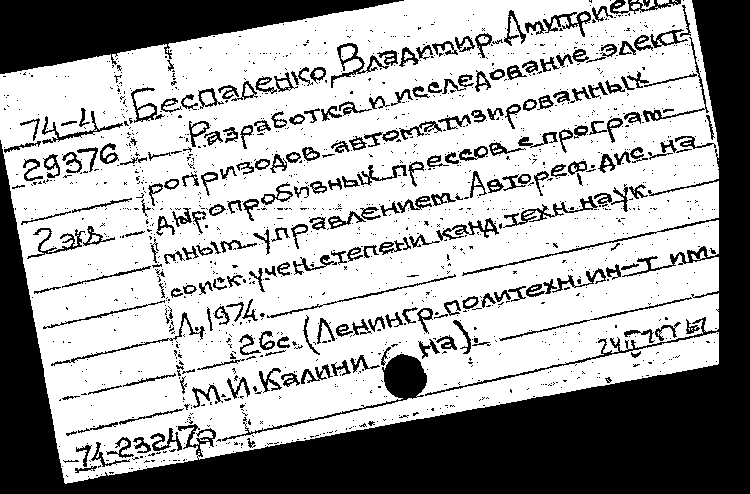 Беспаленко, Владимир Дмитриеви
74-4
29376
2 экз
Разработка и исследование элект-
роприводов автоматизированных
дыропробивных прессов с програм-
мным управлением. Автореф. дис. на
соиск. учен. степени канд. техн. наук.
Л., 1974.
26с. (Ленингр. политехн. ин-т им.
М.И. Калинина).
74-23247а